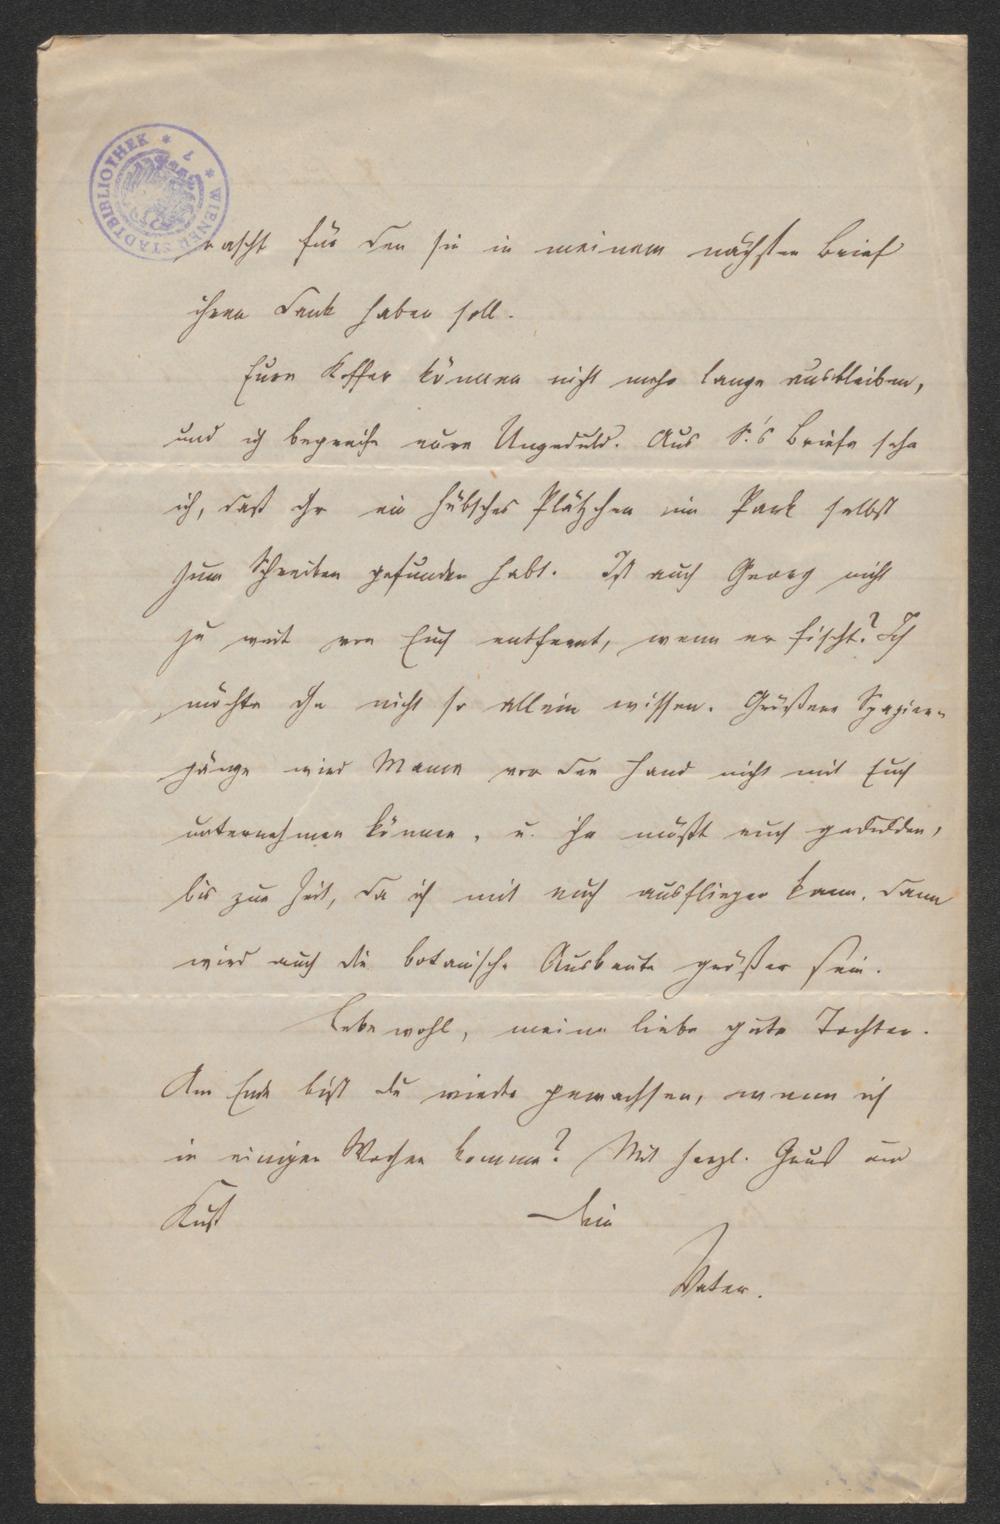 WIENER STADTBIBLIOTHEK
rascht für den sie in meinem nächsten Brief
ihren Dank haben soll.
Eure Koffer können nicht mehr lange ausbleiben,
und ich begreife eure Ungeduld. Aus S.'s Briefe sehe
ich, daß Ihr ein hübsches Plätzchen im Park selbst
zum Schreiben gefunden habt. Ist auch Georg nicht
zu weit von Euch entfernt, wenn er fischt? Ich
möchte ihn nicht so allein wissen. Größere Spazier-
gänge wird Mama vor der Hand nicht mit Euch
unternehmen können, u. ihr müßt euch gedulden,
bis zur Zeit, da ich mit euch ausfliegen kann. Dann
wird auch die botanische Ausbeute größer sein.
Lebe wohl, meine liebe gute Tochter.
Am Ende bist du wieder gewachsen, wenn ich
in einigen Wochen komme? Mit herzl. Gruß und
Kuß Dein
Vater.